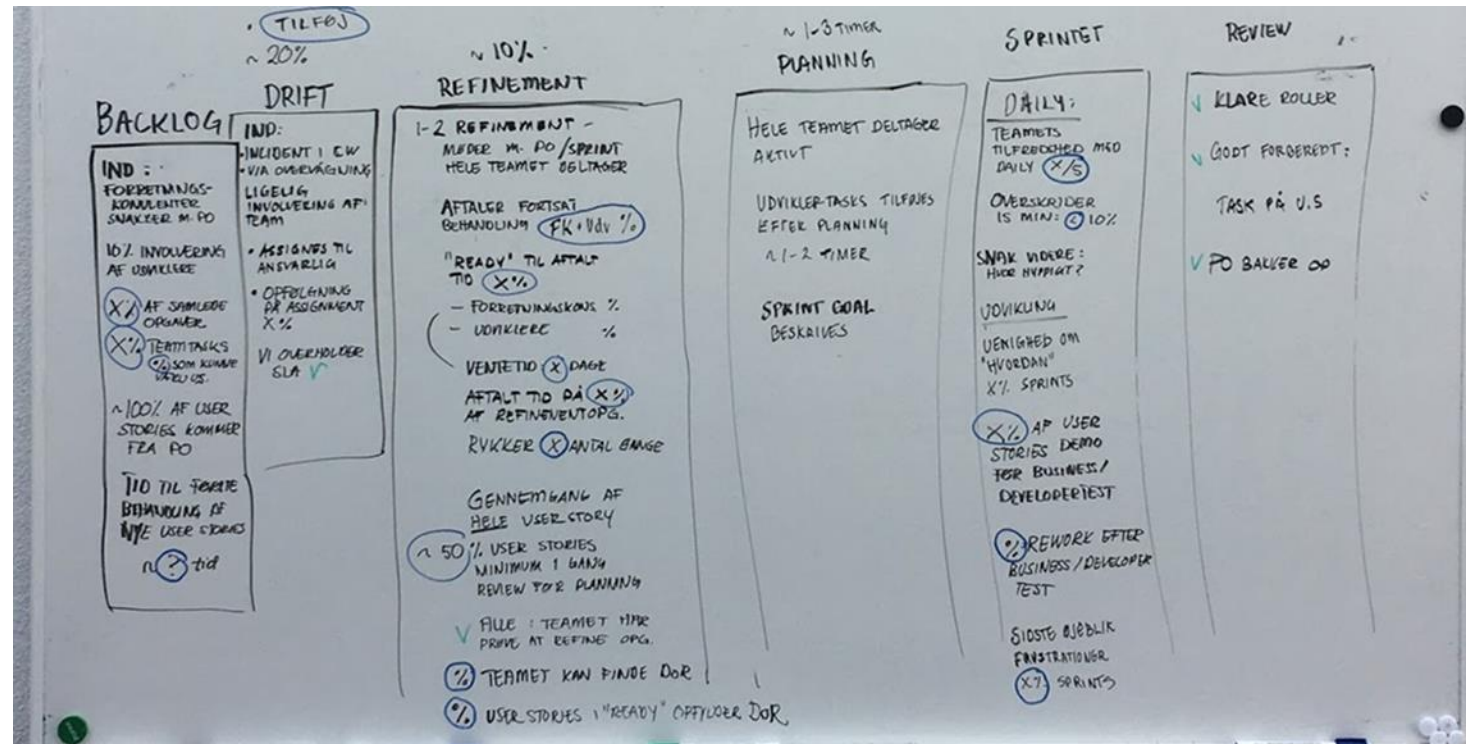 • TILFØJ
~ 20%
DRIFT
BACKLOG
IND :
FORRETNINGS-
KONULENTER
SNAKKER M. PO
10% INVOLVERING
AF UDVIKLERE
X% AF SAMLEDE
OPGAVER
X% TEAMTASKS
% SOM KUNNE
VÆRE US.
~100% AF USER
STORIES KOMMER
FRA PO
TID TIL FØRSTE
BEHANDLING AF
NYE USER STORIES
~ ? tid
IND:
• INCIDENT I CW
• VIA OVERVÅGNING
LIGELIG
INVOLVERING AF
TEAM
• ASSIGNES TIL
ANSVARLIG
• OPFØLGNING
PÅ ASSIGNMENT
X %
VI OVERHOLDER
SLA ✓
~ 10%
REFINEMENT
1-2 REFINEMENT -
MØDER M. PO/SPRINT
HELE TEAMET DELTAGER
AFTALER FORTSAT
BEHANDLING FK + Udv %
"READY" TIL AFTALT
TID X%
- FORRETNINGSKONS %
- UDVIKLERE %
VENTETID X DAGE
AFTALT TID PÅ X%
AF REFINEMENTOPG.
RYKKER X ANTAL GANGE
GENNEMGANG AF
HELE USER STORY
~ 50 % USER STORIES
MINIMUM 1 GANG
REVIEW FØR PLANNING
✓ ALLE I TEAMET HAR
PRØVE AT REFINE OPG.
% TEAMET KAN FINDE DOR
% USER STORIES I "READY" OPFYLDER DOR
~ 1-3 TIMER
PLANNING
HELE TEAMET DELTAGER
AKTIVT
UDVIKLER-TASKS TILFØJES
EFTER PLANNING
~ 1-2 TIMER
SPRINT GOAL
BESKRIVES
SPRINTET
DAILY:
TEAMETS
TILFREDSHED MED
DAILY X/5
OVERSKRIDER
15 MIN: < 10%
SNAK VIDERE:
HVOR HYPPIGT?
UDVIKLING
UENIGHED OM
"HVORDAN"
X% SPRINTS
X% AF USER
STORIES DEMO
FØR BUSINESS/
DEVELOPERTEST
% REWORK EFTER
BUSINESS/DEVELOPER
TEST
SIDSTE ØJEBLIK
FRUSTRATIONER
X% SPRINTS
REVIEW
✓ KLARE ROLLER
✓ GODT FORBEREDT:
TASK PÅ U.S
✓ PO BAKKER OP